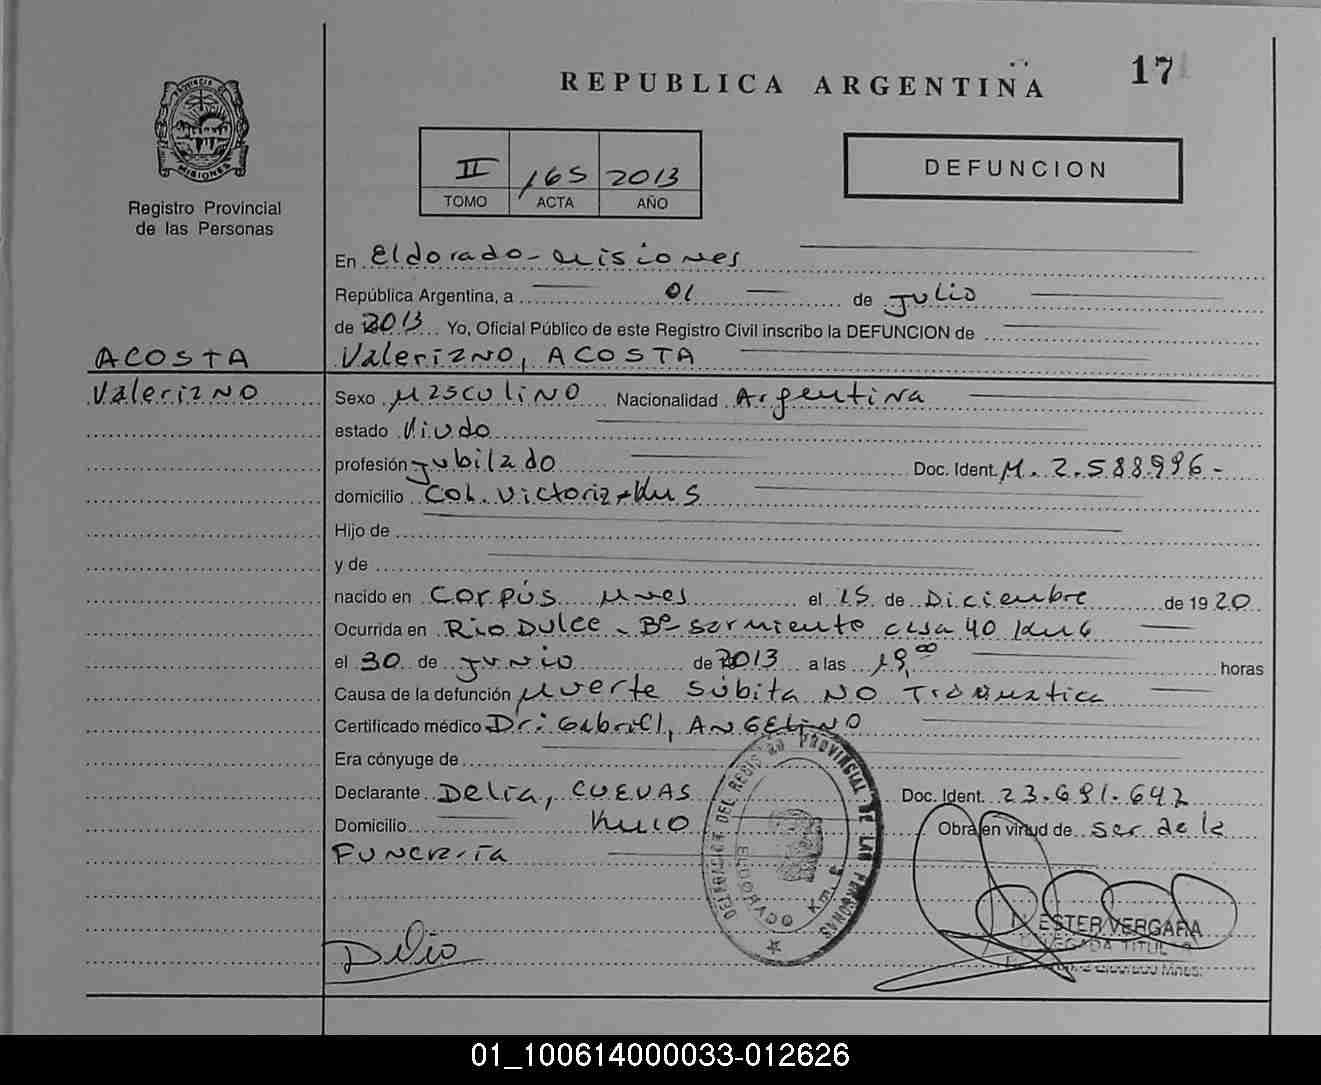 REPUBLICA ARGENTINA
17
PROVINCIA DE MISIONES
Registro Provincial
de las Personas
II 165 2013
TOMO ACTA AÑO
DEFUNCION
En Eldorado - Misiones
República Argentina, a 01 de Julio
de 2013 Yo, Oficial Público de este Registro Civil inscribo la DEFUNCION de
ACOSTA
Valeriano, ACOSTA
Valeriano
Sexo Masculino Nacionalidad Argentina
estado Viudo
profesión Jubilado Doc. Ident. M. 2.588.996-
domicilio Col. Victoria - Km 5
Hijo de
y de
nacido en Corpús Mnes el 15 de Diciembre de 1920
Ocurrida en Rio Dulce - Bº Sarmiento casa 40 Km 6
el 30 de Junio de 2013 a las 19,00 horas
Causa de la defunción Muerte Súbita NO Traumatica
Certificado médico Dr: Gabriel, ANGELINO
Era cónyuge de
Declarante Delia, CUEVAS Doc. Ident. 23.691.642
Domicilio Km 10 Obra en virtud de ser de la
Funeraria
DELEGACION DEL REGISTRO PROVINCIAL DE LAS PERSONAS
ELDORADO Km.
Delia
ESTER VERGARA
DELEGADA TITULAR
Eldorado Mnes.
01_100614000033-012626